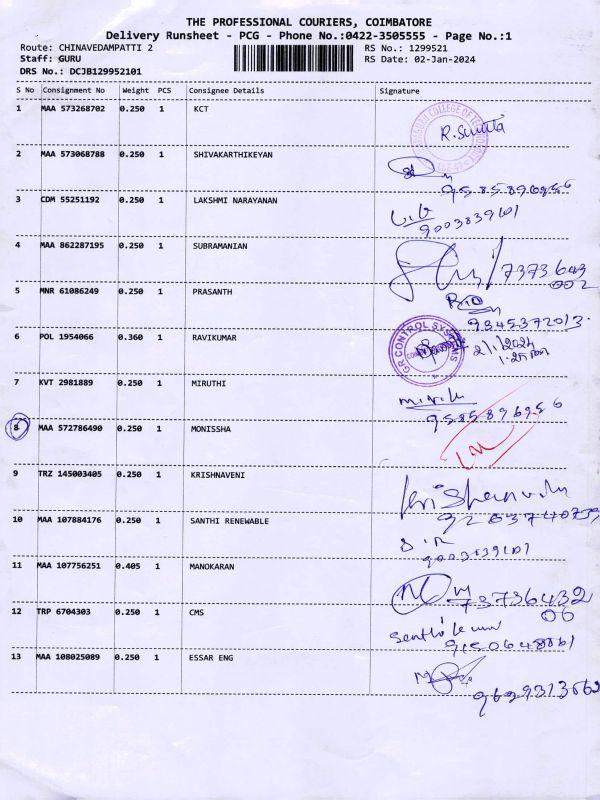 THE PROFESSIONAL COURIERS, COIMBATORE
Delivery Runsheet - PCG - Phone No.:0422-3505555 - Page No.:1
Route: CHINAVEDAMPATTI 2 RS No.: 1299521
Staff: GURU RS Date: 02-Jan-2024
DRS No.: DCJB129952101
S No Consignment No Weight PCS Consignee Details Signature
1 MAA 573268702 0.250 1 KCT
2 MAA 573068788 0.250 1 SHIVAKARTHIKEYAN
9585896956
3 CDM 55251192 0.250 1 LAKSHMI NARAYANAN
9003839101
4 MAA 862287195 0.250 1 SUBRAMANIAN
7373643
002
5 MNR 61086249 0.250 1 PRASANTH
9345372013.
6 POL 1954066 0.360 1 RAVIKUMAR
GR CONTROL SYSTEMS
2/1/2024
1.25 pm
7 KVT 2981889 0.250 1 MIRUTHI
9585896956
8 MAA 572786490 0.250 1 MONISSHA
9 TRZ 145003405 0.250 1 KRISHNAVENI
10 MAA 107884176 0.250 1 SANTHI RENEWABLE
9003839101
11 MAA 107756251 0.405 1 MANOKARAN
73736432
06
12 TRP 6704303 0.250 1 CMS
13 MAA 108025089 0.250 1 ESSAR ENG